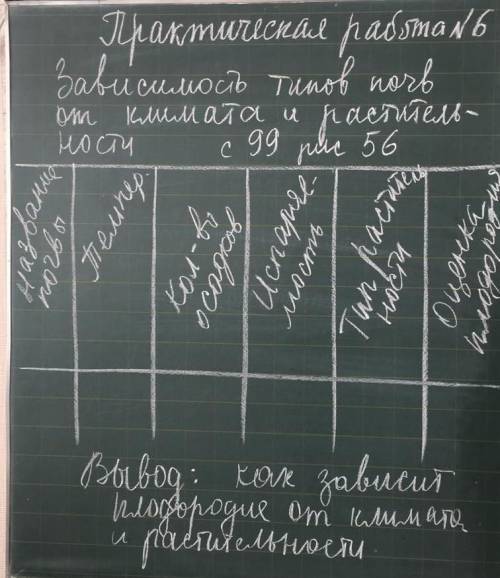 Практическая работа №6
Зависимость типов почв
от климата и раститель-
ности с 99 рис 56
Название
почвы
Темпер.
Кол-во
осадков
Испаряе-
мость
Тип раститель
ности
Оценка
плодород-ия
Вывод: как зависит
плодородие от климата
и растительности